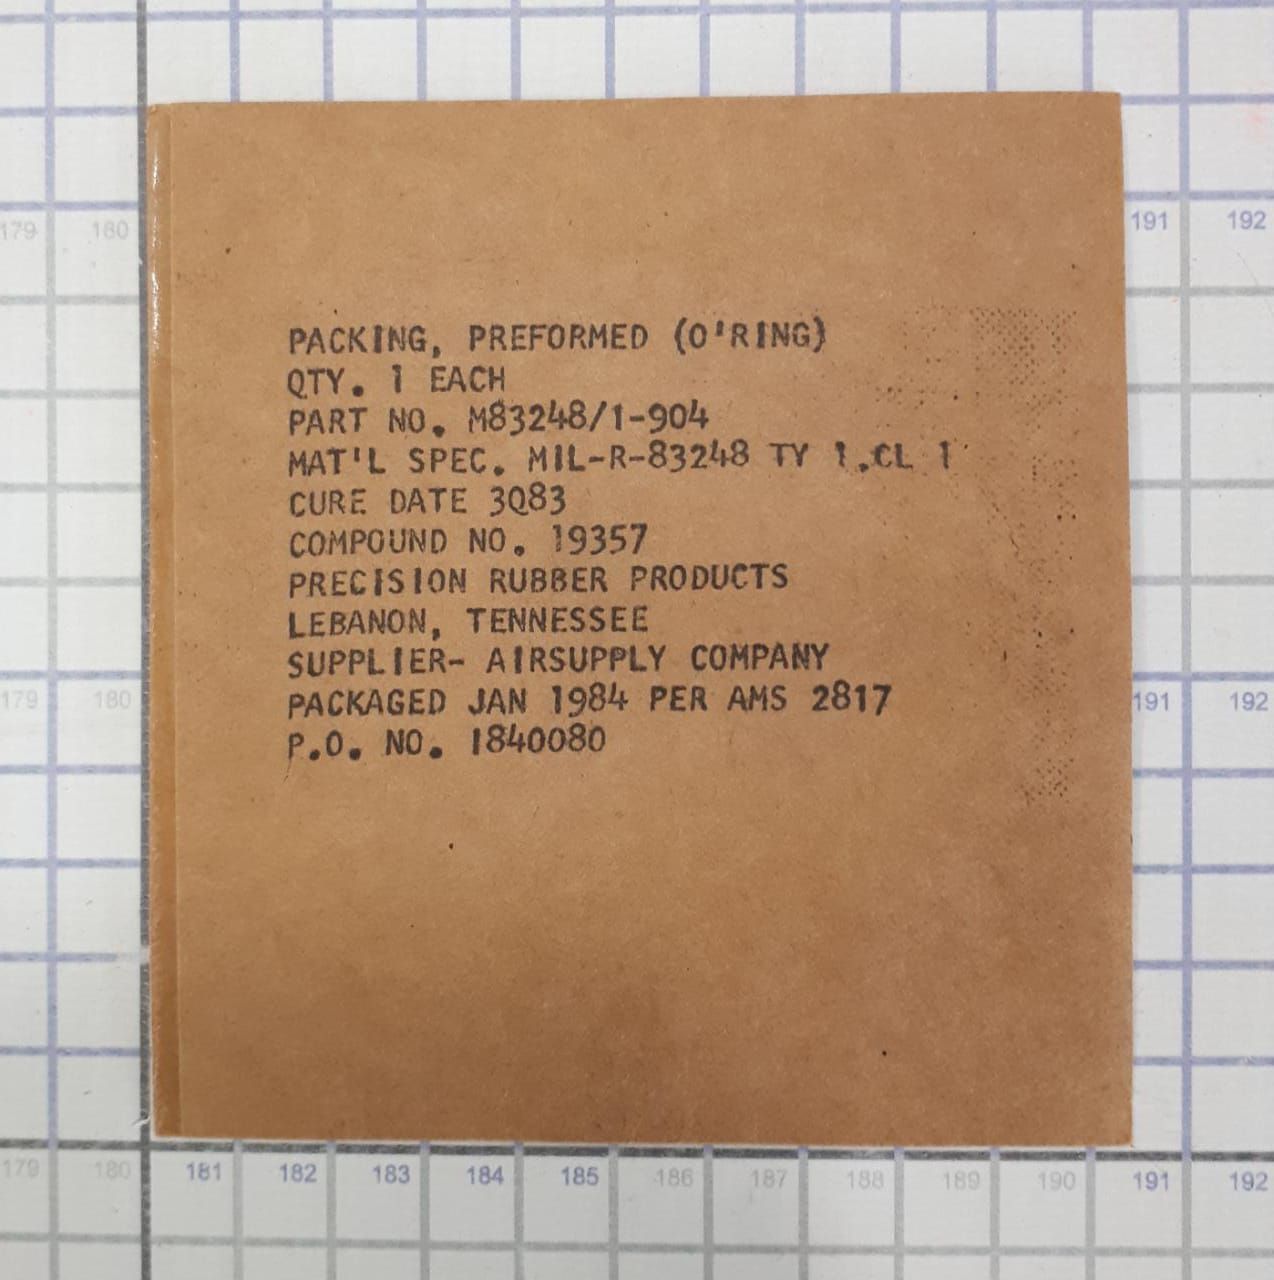 179 180 191 192
PACKING, PREFORMED (O'RING)
QTY. 1 EACH
PART NO. M83248/1-904
MAT'L SPEC. MIL-R-83248 TY 1.CL 1
CURE DATE 3Q83
COMPOUND NO. 19357
PRECISION RUBBER PRODUCTS
LEBANON, TENNESSEE
SUPPLIER- AIRSUPPLY COMPANY
179 180 PACKAGED JAN 1984 PER AMS 2817 191 192
P.O. NO. 1840080
179 180 181 182 183 184 185 186 187 188 189 190 191 192